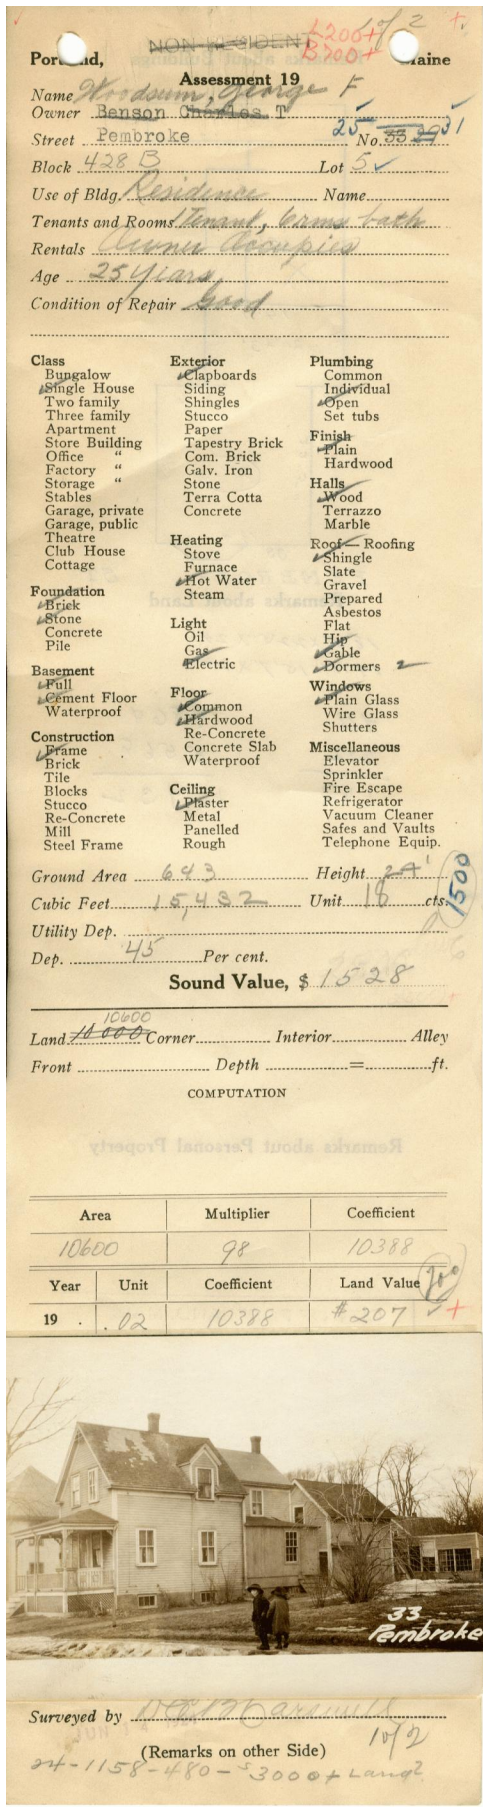 NON-RESIDENT L200+ 1 of 2 +
B700+
Portland, Maine
Assessment 19
Name Woodsum, George F
Owner Benson Charles T
Street Pembroke 25 No. 33 29 31
Block 428 B Lot 5
Use of Bldg. Residence Name
Tenants and Rooms 1 Tenant, 6 rms bath
Rentals Owner Occupies
Age 25 Years
Condition of Repair Good
Class
Bungalow
Single House
Two family
Three family
Apartment
Store Building
Office "
Factory "
Storage "
Stables
Garage, private
Garage, public
Theatre
Club House
Cottage
Foundation
Brick
Stone
Concrete
Pile
Basement
Full
Cement Floor
Waterproof
Construction
Frame
Brick
Tile
Blocks
Stucco
Re-Concrete
Mill
Steel Frame
Exterior
Clapboards
Siding
Shingles
Stucco
Paper
Tapestry Brick
Com. Brick
Galv. Iron
Stone
Terra Cotta
Concrete
Heating
Stove
Furnace
Hot Water
Steam
Light
Oil
Gas
Electric
Floor
Common
Hardwood
Re-Concrete
Concrete Slab
Waterproof
Ceiling
Plaster
Metal
Panelled
Rough
Plumbing
Common
Individual
Open
Set tubs
Finish
Plain
Hardwood
Halls
Wood
Terrazzo
Marble
Roof — Roofing
Shingle
Slate
Gravel
Prepared
Asbestos
Flat
Hip
Gable
Dormers 2
Windows
Plain Glass
Wire Glass
Shutters
Miscellaneous
Elevator
Sprinkler
Fire Escape
Refrigerator
Vacuum Cleaner
Safes and Vaults
Telephone Equip.
Ground Area 643 Height 24'
Cubic Feet 15,432 Unit 18 cts. 1500
Utility Dep.
Dep. 45 Per cent.
Sound Value, $ 1528
10600
Land 10000 Corner Interior Alley
Front Depth = ft.
COMPUTATION
Remarks about Personal Property
Area Multiplier Coefficient
10600 98 10388
Year Unit Coefficient Land Value 200
19 . .02 10388 $207 +
33
Pembroke
Surveyed by
(Remarks on other Side) 1 of 2
24-1158-480-$3000+ Land?